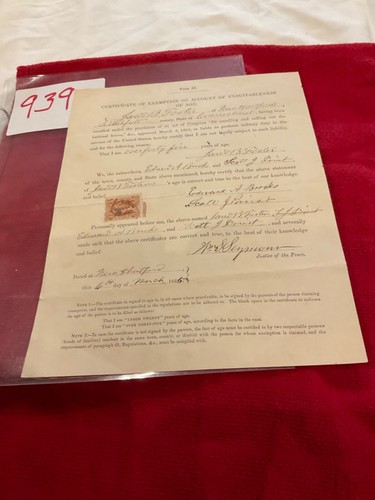 939
Form 30.
CERTIFICATE OF EXEMPTION ON ACCOUNT OF UNSUITABLENESS
OF AGE.
I, of New Hartford,
Litchfield county, State of Connecticut, having been
enrolled under the provisions of an act of Congress "for enrolling and calling out the
national forces," &c., approved March 3, 1863, as liable to perform military duty in the
service of the United States, hereby certify that I am not legally subject to such liability, and
for the following reason:
That I am over forty five years of age.
We, the subscribers, Edward A Brooks and
of the town, county, and State above mentioned, hereby certify that the above statement
of age is correct and true to the best of our knowledge
and belief.
Edward A Brooks
Personally appeared before me, the above-named
Edward A Brooks and and severally
made oath that the above certificates are correct and true, to the best of their knowledge
and belief.
Wm S Seymour
Justice of the Peace.
Dated at New Hartford
this 6th day of March 1865
NOTE 1.—The certificate in regard to age is, in all cases where practicable, to be signed by the parents of the person claiming
exemption, and the reservations needed in the regulations are to be followed. The blank space in the certificate to indicate
the age of the person is to be filled as follows:
That I am "UNDER TWENTY" years of age.
That I am "OVER THIRTY-FIVE" years of age, according to the facts in the case.
NOTE 2.—In case the certificate is not signed by the parents, the fact of age must be certified to by two respectable persons
(heads of families) resident in the same town, county, or district with the person for whom exemption is claimed, and the
requirements of paragraph 61, Regulations, &c., must be complied with.